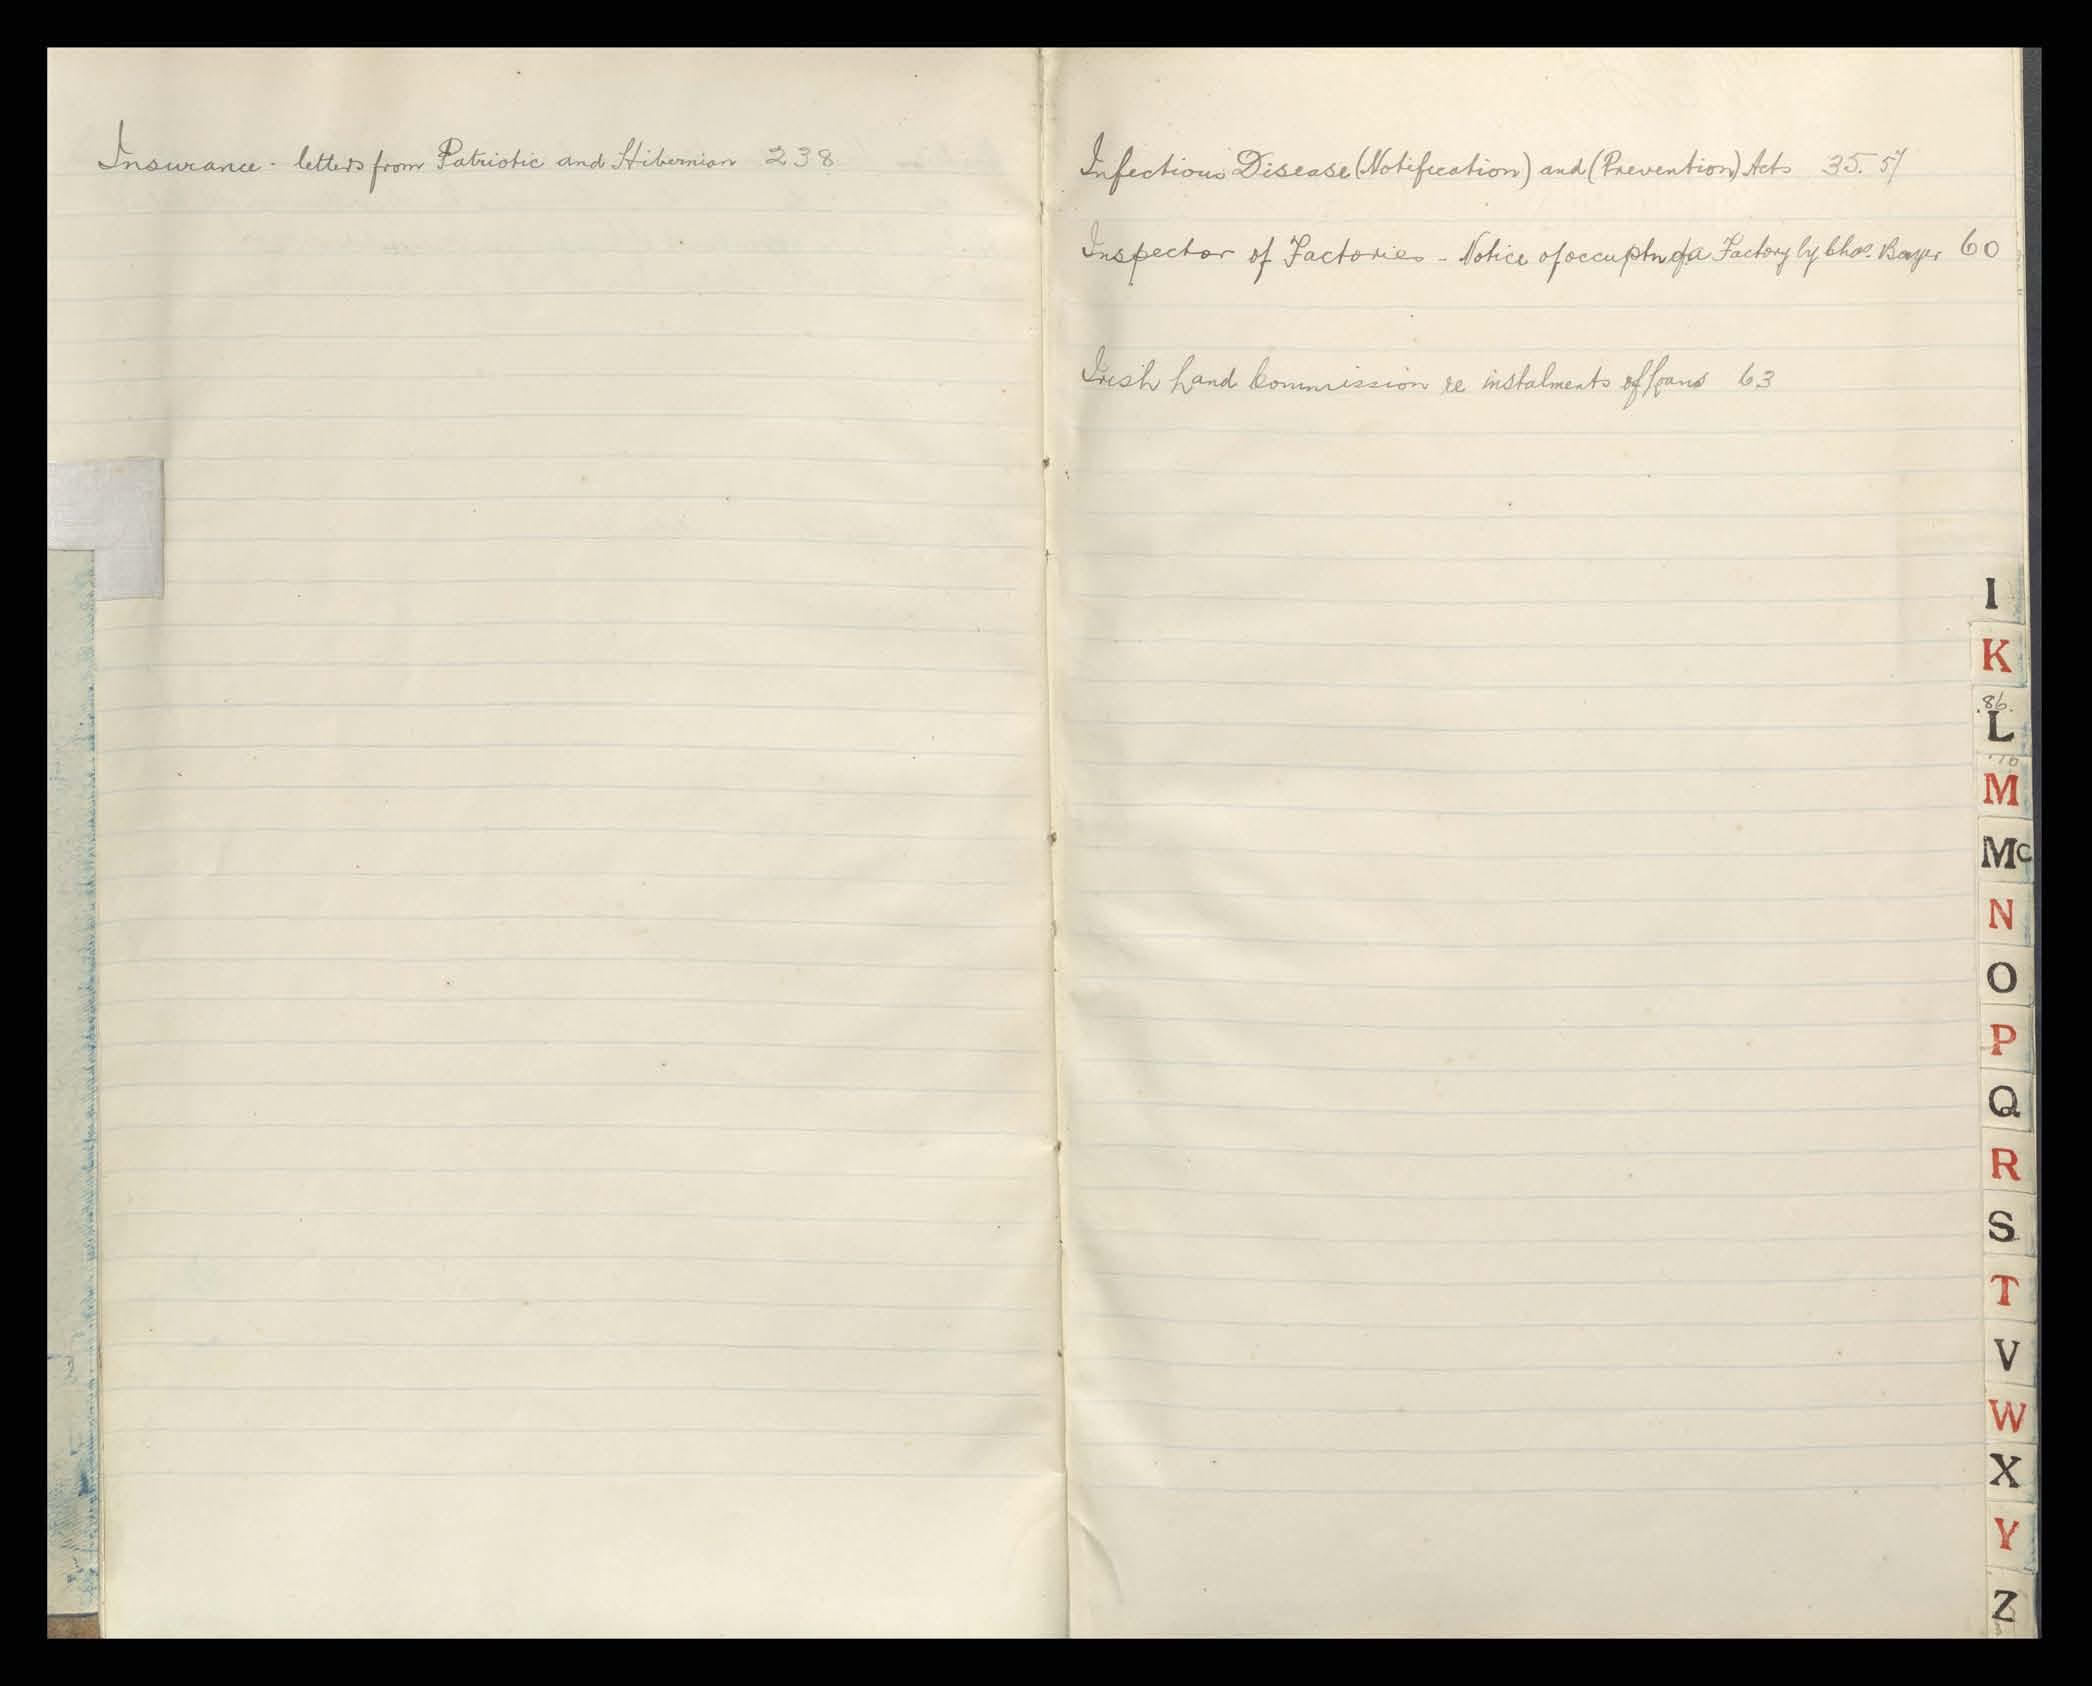 Insurance - letters from Patriotic and Hibernian 238
Infectious Disease (Notification) and (Prevention) Acts 35. 57
Inspector of Factories - Notice of occuptn of a Factory by Chas. Bayer 60
Irish Land Commission re instalments of Loans 63
I
K
.86.
L
M
Mc
N
O
P
Q
R
S
T
V
W
X
Y
Z